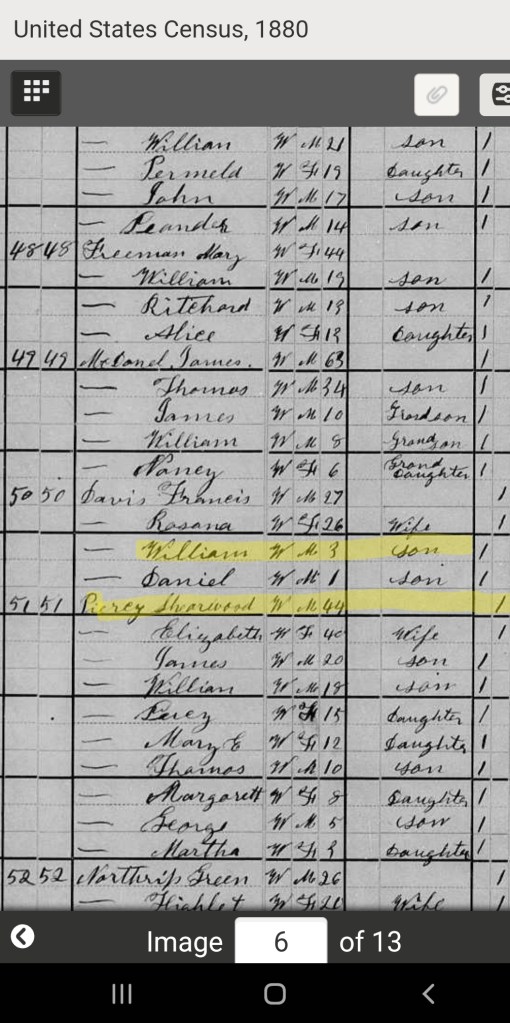 United States Census, 1880
— Willian W M 21 son 1
— Permeld W F 19 Daughter 1
— John W M 17 son 1
— Leander W M 14 son 1
48 48 Freeman Mary W F 44
— William W M 19 son 1
— Ritchard W M 13 son 1
— Alice W F 13 Daughter 1
49 49 McDanel James. W M 63
— Thomas W M 34 son 1
— James W M 10 Grandson 1
— William W M 8 Grandson 1
— Nancy W F 6 Grand Daughter 1
50 50 Davis Francis W M 27 1
— Rosana W F 26 Wife 1
— William W M 3 son 1
— Daniel W M 1 son 1
51 51 Piercy Sharwood W M 44 1
— Elizabeth W F 40 Wife 1
— James W M 20 son 1
— Willian W M 18 son 1
— W F 15 Daughter 1
— Mary E W F 12 Daughter 1
— Thamos W M 10 son 1
— Margarett W F 8 Daughter 1
— George W M 5 son 1
— Martha W F 3 Daughter 1
52 52 Northrip Green W M 26 1
— W F Wife 1
Image 6 of 13